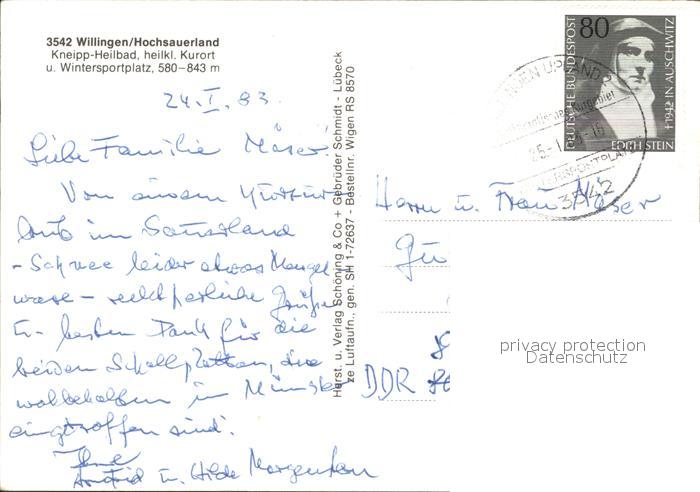 3542 Willingen/Hochsauerland
Kneipp-Heilbad, heilkl. Kurort
u. Wintersportplatz, 580–843 m
24.I.83.
Liebe Familie Möser!
Von einem
im Sauerland
- Schnee leider etwas Mangel-
ware - recht herzliche Grüße
u. besten Dank für die
beiden Schallplatten, die
wohlbehalten in Münster
eingetroffen sind.
Ihre
Astrid u. Hilde Morgenthau
Horst. u. Verlag Schöning & Co + Gebrüder Schmidt - Lübeck
ze Luftaufn., gen. SH 1-72637 - Bestellnr. Wigen RS 8570
80
DEUTSCHE BUNDESPOST
†1942 IN AUSCHWITZ
EDITH STEIN
3542
Herrn u. Frau Möser
DDR
privacy protection
Datenschutz